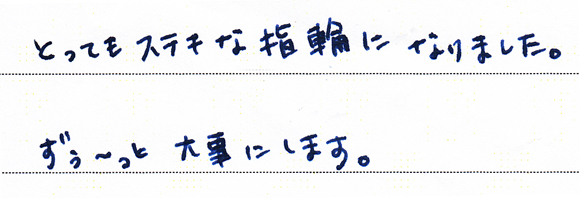 とってもステキな指輪に なりました。
ずぅ~っと 大事にします。